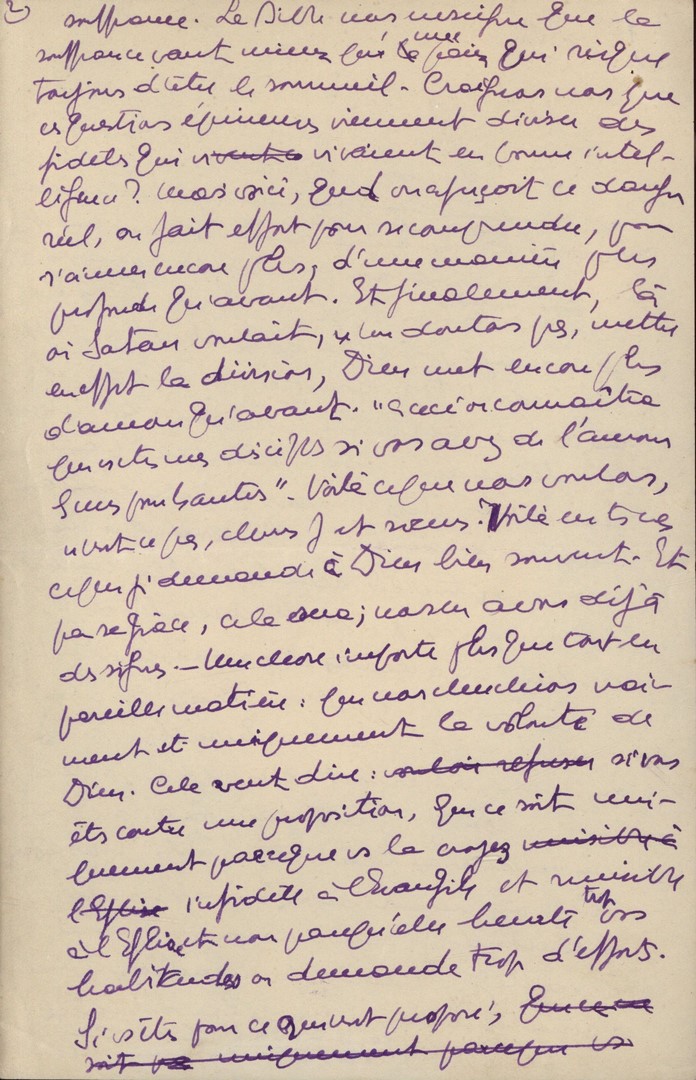 2)
souffrance. La Bible nous enseigne que la
souffrance vaut mieux qu'une paix qui risque
toujours d'être le sommeil. Craignons nous que
ces questions épineuses viennent diviser des
fidèles qui vivent vivaient en bonne intel-
ligence? Mais voici, quand on aperçoit ce danger
réel, on fait effort pour se comprendre, pour
s'aimer encore plus, d'une manière plus
profonde qu'avant. Et finalement, là
où Satan voulait, n'en doutons pas, mettre
en effet la division, Dieu met encore plus
d'amour qu'avant. "à ceci on connaîtra
que vs êtes mes disciples si vous avez de l'amour
les uns pour les autres". Voilà ce que nous voulons,
n'est-ce pas, chers f et sœurs? Voilà en ts cas
ce que j'ai demandé à Dieu bien souvent. Et
par sa grâce, cela sera; nous en avons déjà
des signes. — Une chose importe plus que tout en
pareille matière: que nous cherchions vrai-
ment et uniquement la volonté de
Dieu. Cela veut dire: vouloir refuser si vous
êts contre une proposition, que ce soit uni-
quement parceque vs la croyez nuisible à
l'Eglise infidèle à l'Evangile et nuisible
à l'Eglise et non parqu'elle heurte trop vos
habitudes ou demande trop d'efforts.
Si vs êts pour ce qui est proposé, que ce ne
soit pas uniquement parceque vs